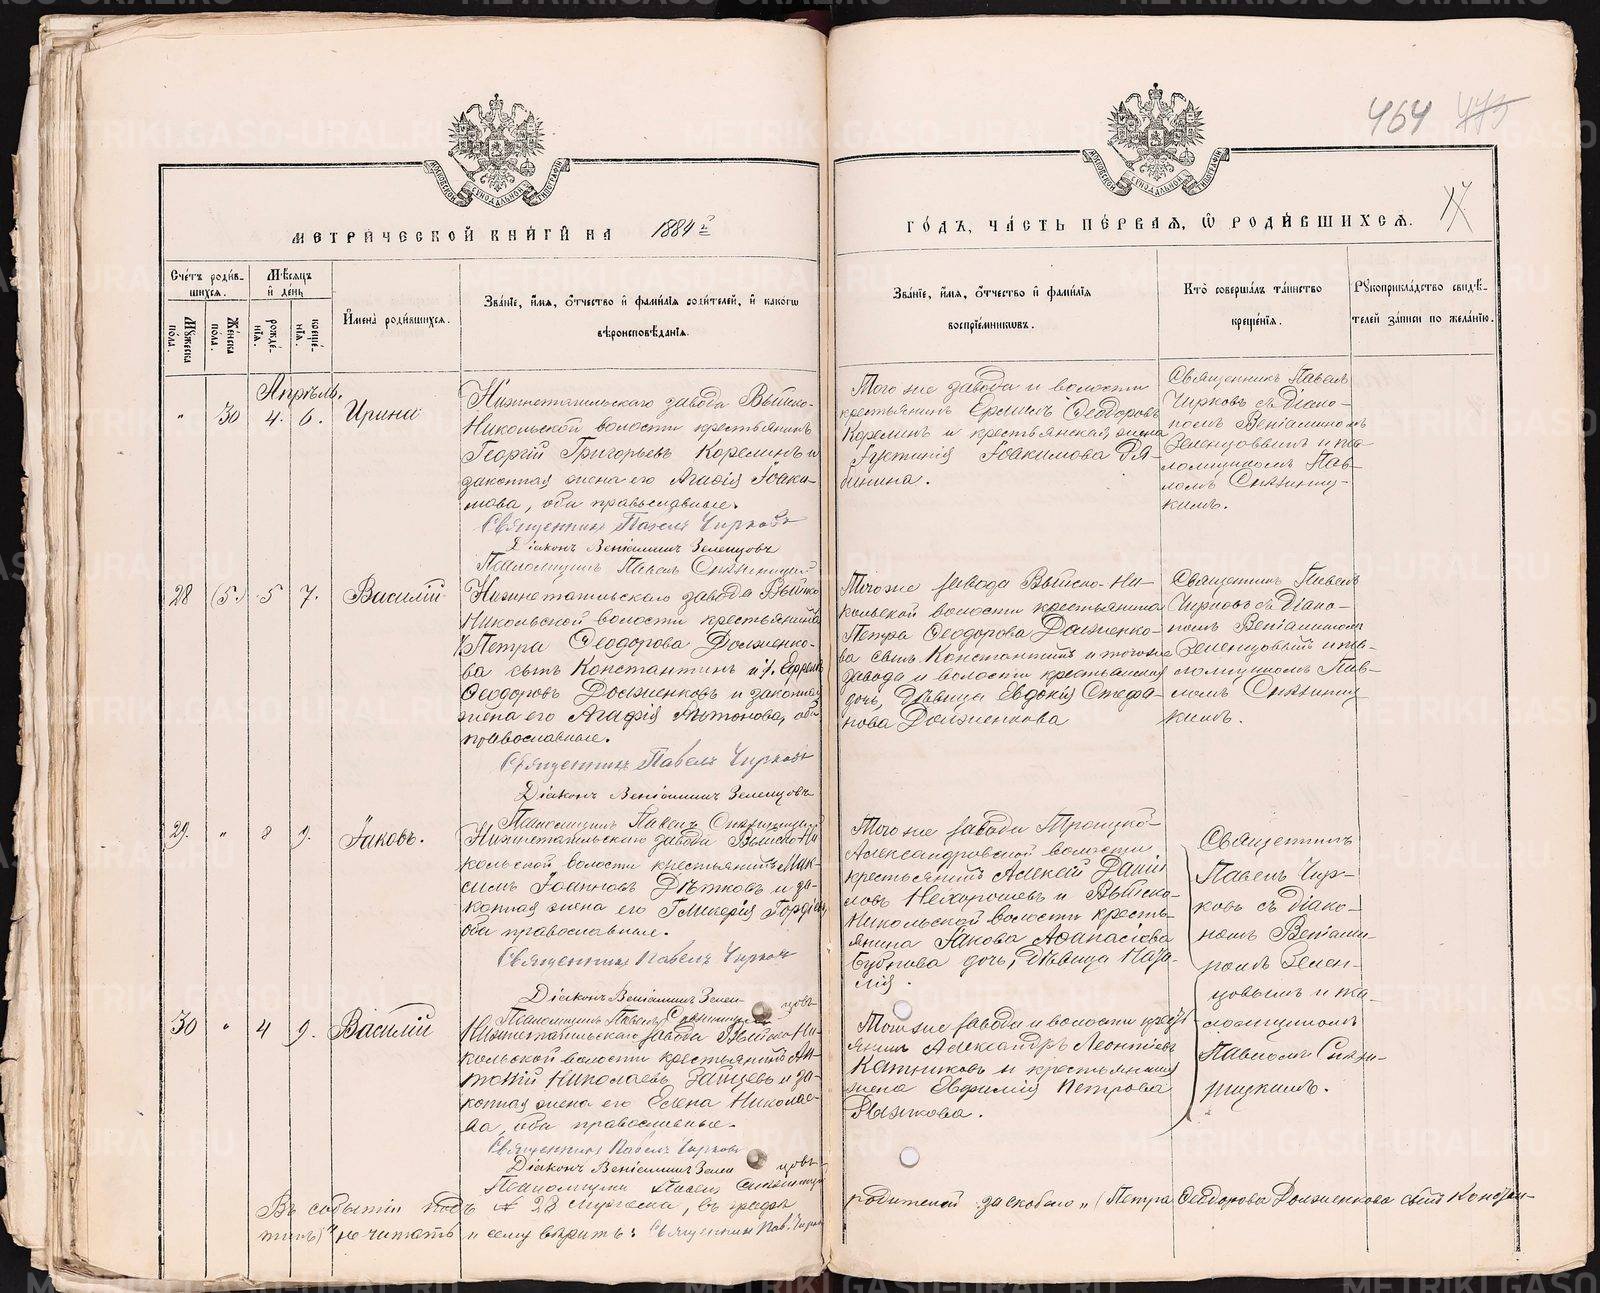 464 475
17
МЕТРИЧЕСКОЙ КНИГИ НА 1884 г.
ГОДЪ, ЧАСТЬ ПЕРВАЯ, Ѿ РОДИВШИХСЯ.
Счетъ родив-
шихся.
Мѣсяцъ
и день
Мужеска пола.
Женска пола.
рожде-
нія.
креще-
нія.
Имена родившихся.
Званіе, имя, отчество и фамилія родителей, и какогѡ
вѣроисповѣданія.
Званіе, имя, отчество и фамилія
воспріемниковъ.
Кто совершалъ таинство
крещенія.
Рукоприкладство свидѣ-
телей записи по желанію.
Апрѣль.
" 30 4. 6. Ирина
Нижнетагильскаго завода Выйско-
Никольской волости крестьянинъ
Георгій Григорьевъ Корелинъ и
законная жена его Агафія Іоаки-
мова, оба православные.
Священникъ Павелъ Чирковъ
Діаконъ Веніаминъ Зеленцовъ
Псаломщикъ Павелъ
Того же завода и волости
крестьянинъ Ѳеодоровъ
Корелинъ и крестьянская жена
Іустинія Іоакимова Ря-
бинина.
Священникъ Павелъ
Чирковъ съ Діако-
номъ Веніаминомъ
Зеленцовымъ и пса-
ломщикомъ Пав-
ломъ
кимъ.
28 (5.) 5 7. Василій
Нижнетагильскаго завода Выйско
Никольской волости крестьянина
(Петра Ѳеодорова Долженко-
ва сынъ Константинъ и) Ефремъ
Ѳеодоровъ Долженковъ и законная
жена его Агафія Антонова, оба
православные.
Священникъ Павелъ Чирковъ
Діаконъ Веніаминъ Зеленцовъ
Псаломщикъ Павелъ
Того же завода Выйско-Ни-
кольской волости крестьянина
Петра Ѳеодорова Долженко-
ва сынъ Константинъ и того же
завода и волости крестьянская
дочь, дѣвица Евдокія Стефа-
нова Долженкова
Священникъ Павелъ
Чирковъ съ Діако-
номъ Веніаминомъ
Зеленцовымъ и пса-
ломщикомъ Пав-
ломъ
кимъ.
29. " 8 9. Іаковъ.
Нижнетагильскаго завода Выйско-Ни
кольской волости крестьянинъ Мак-
симъ Іоанновъ Дѣтковъ и за-
конная жена его Гликерія Гордіева
оба православные.
Священникъ Павелъ Чирковъ
Діаконъ Веніаминъ Зелен цовъ
Псаломщикъ Павелъ
Того же завода Троицко-
Александровской волости
крестьянинъ Алексѣй Даніи
ловъ Нехорошевъ и Выйско-
Никольской волости кресть-
янина Іакова Аѳанасіева
Бубнова дочь, дѣвица Ната-
лія.
Священникъ
Павелъ Чир-
ковъ съ діако-
номъ Веніами-
номъ Зелен-
цовымъ и пса-
ломщикомъ
Павломъ
30 " 4 9. Василій
Нижнетагильскаго завода Выйско-Ни-
кольской волости крестьянинъ Ан-
тоній Николаевъ Зайцевъ и за-
конная жена его Елена Николае-
ва, оба православные.
Священникъ Павелъ Чирковъ
Діаконъ Веніаминъ Зелен цовъ
Псаломщикъ Павелъ
Того же завода и волости крест
янинъ Александръ Леонтіевъ
и крестьянская
жена Евфимія Петрова
Рыжкова.
Въ событіи подъ № 28 мужеска, въ графѣ родителей за скобою „(Петра Ѳеодорова Долженкова сынъ Констан-
тинъ)" не читать и сему вѣрить: Священникъ Пав. Чирковъ